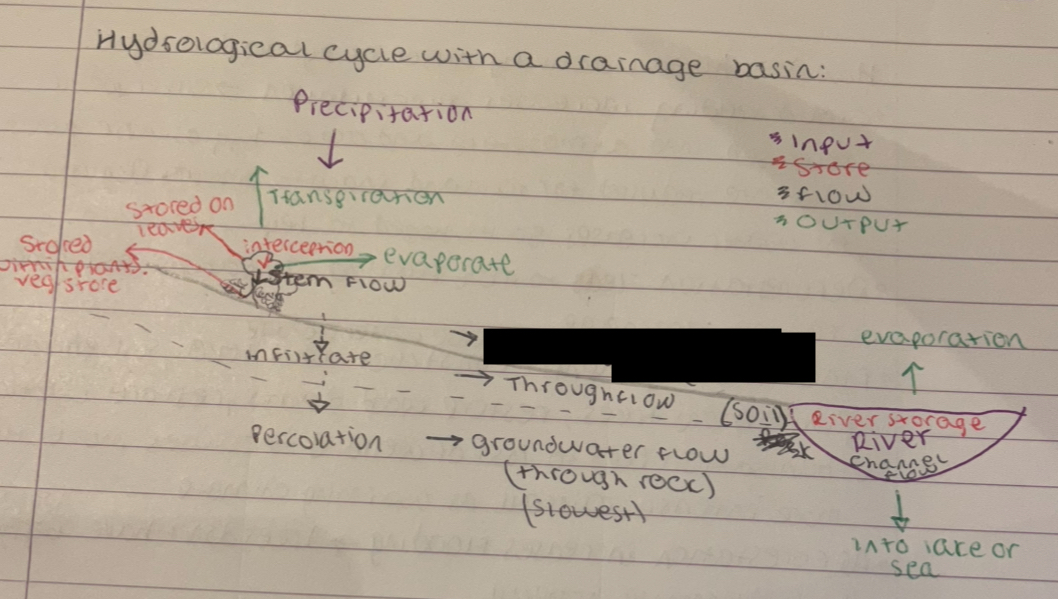 Hydrological cycle with a drainage basin:
Precipitation
* Input
* Store
* Flow
* Output
Transpiration
stored on
leaves
interception
evaporate
Stored
plants.
veg store
Stem flow
infiltrate
evaporation
Throughflow
(soil)
River storage
River
channel
flow
Percolation
groundwater flow
(through rock)
(slowest)
into lake or
sea